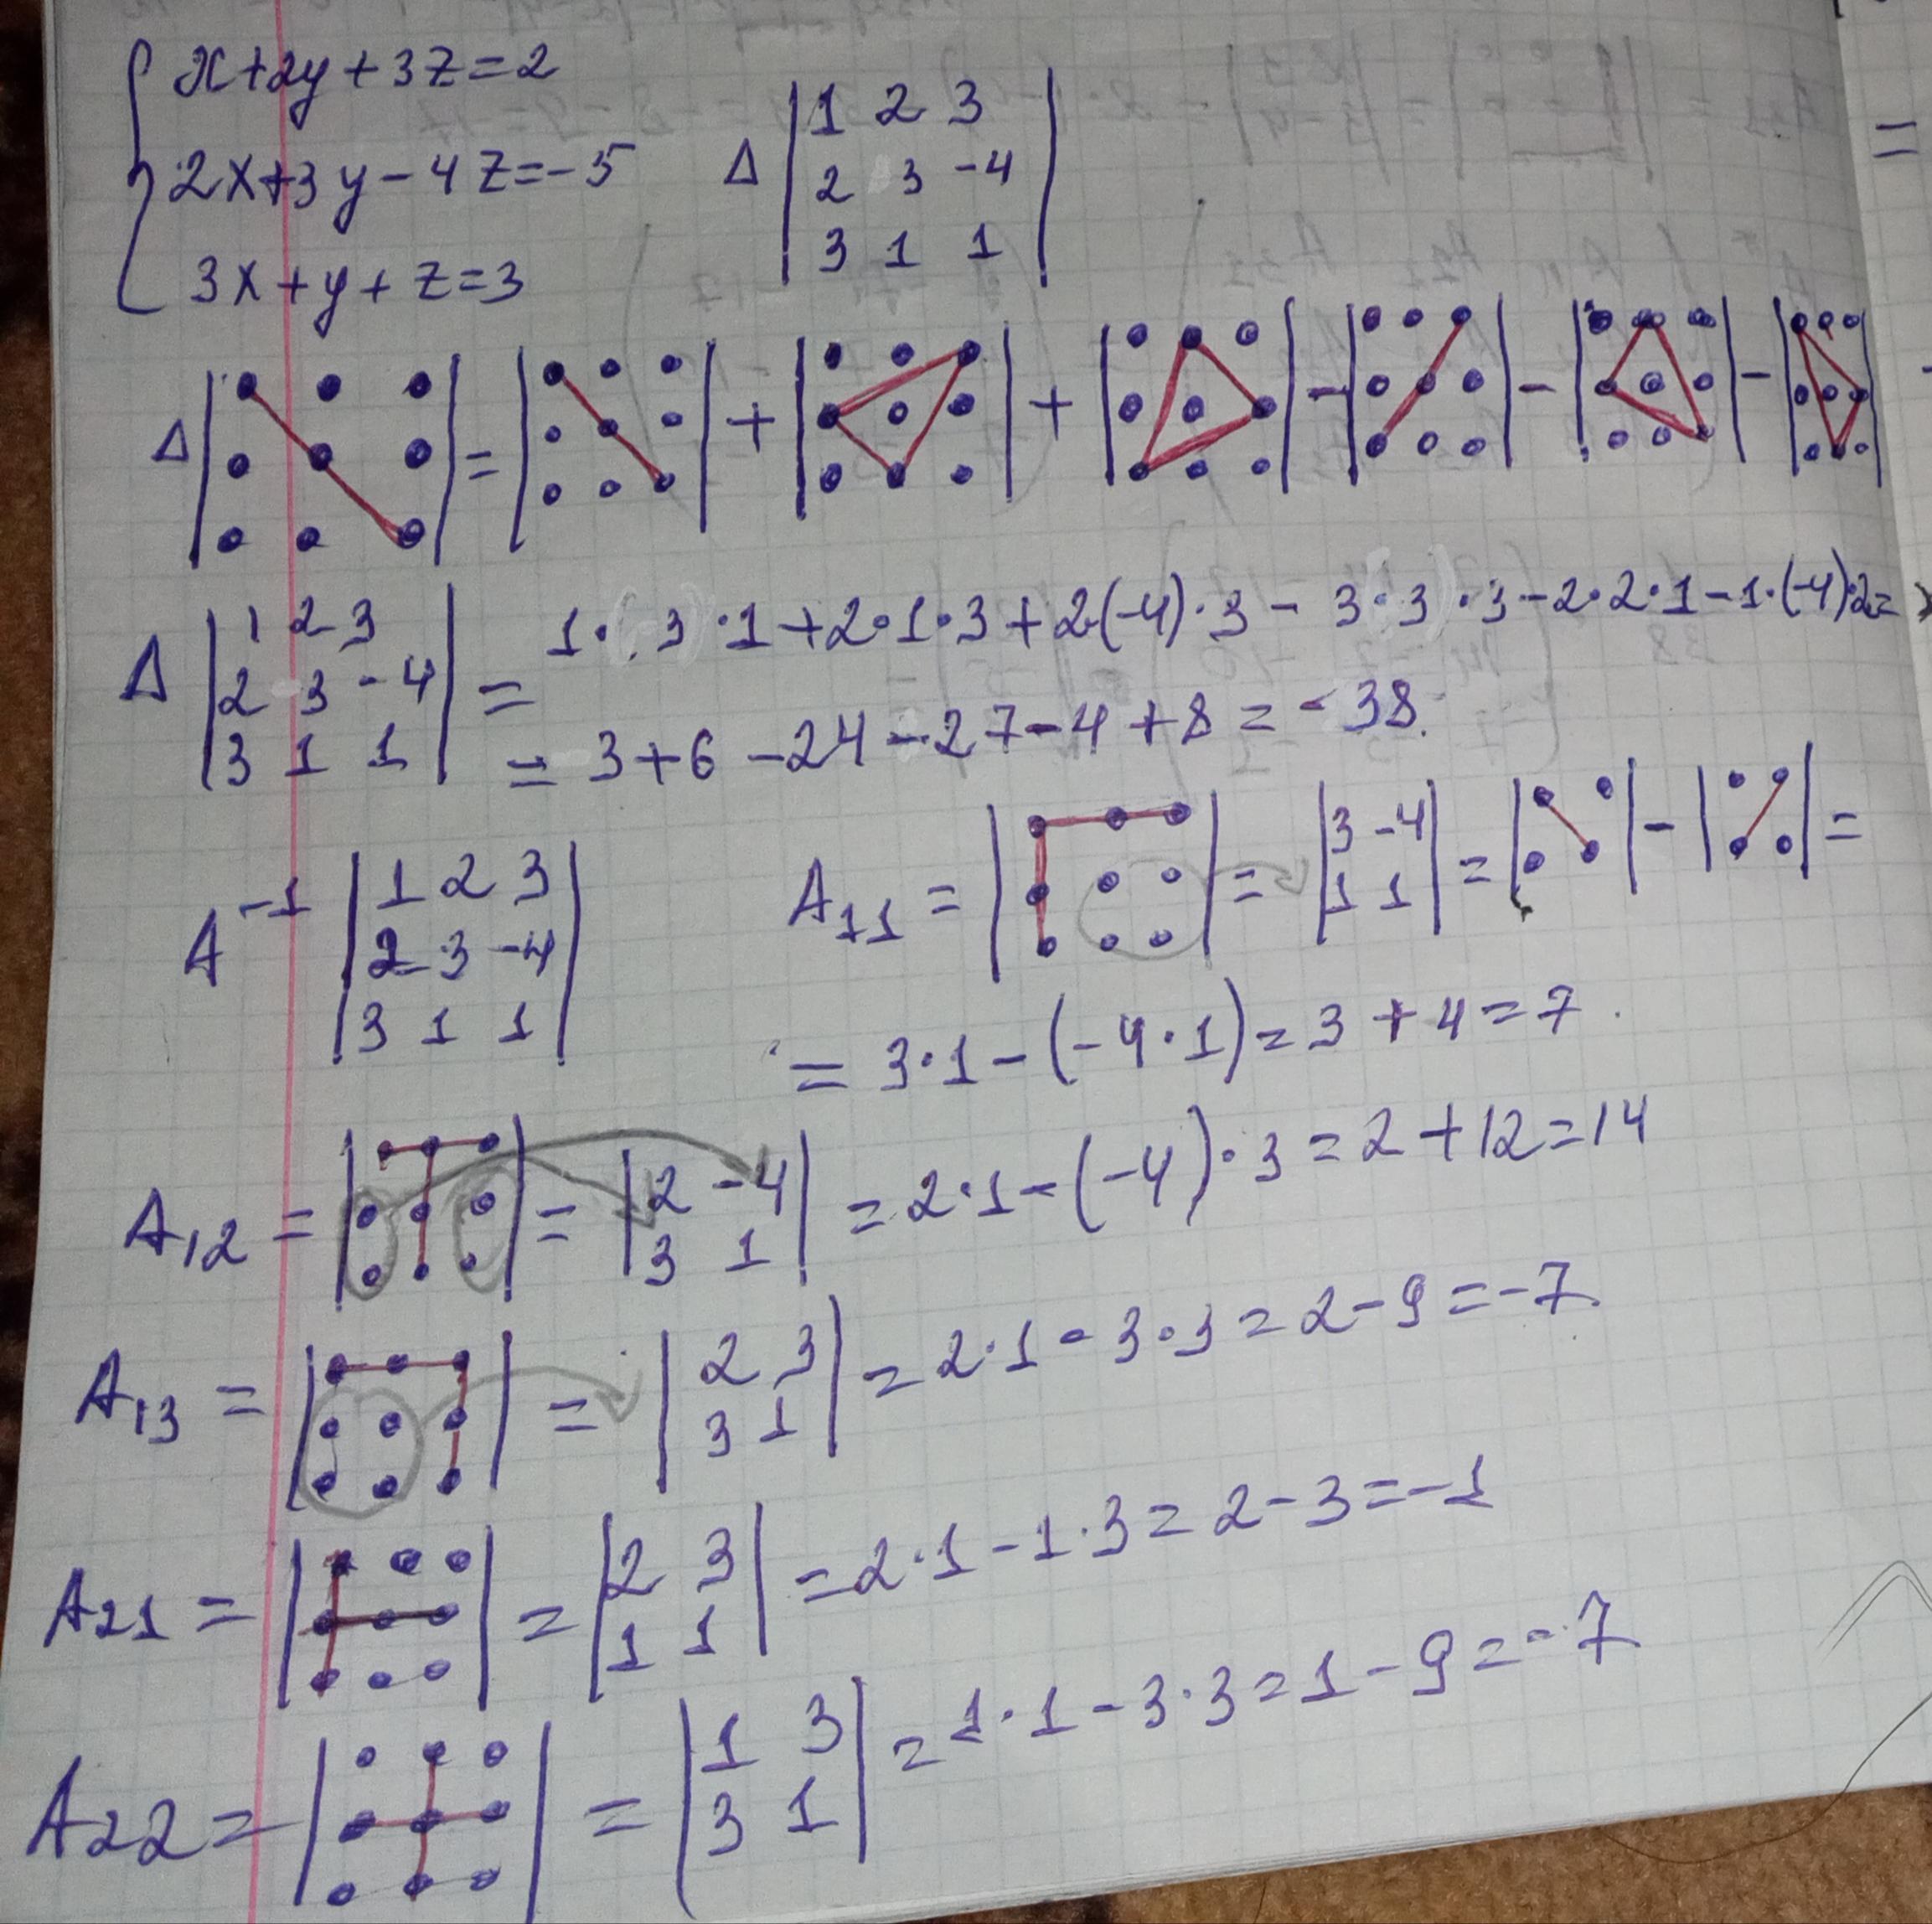 x+2y+3z=2
2x+3y-4z=-5
3x+y+z=3
Δ |1 2 3|
|2 3 -4|
|3 1 1|
=
Δ | | = | | + | | + | | - | | - | | - | |
Δ |1 2 3|
|2 3 -4|
|3 1 1|
= 1·3·1+2·1·3+2(-4)·3-3·3·3-2·2·1-1·(-4)·2=
= 3+6-24-27-4+8=-38.
A⁻¹ |1 2 3|
|2 3 -4|
|3 1 1|
A₁₁ = | | = |3 -4| = | | - | | =
|1 1|
= 3·1-(-4·1)=3+4=7.
A₁₂ = | | = |2 -4| = 2·1-(-4)·3=2+12=14
|3 1|
A₁₃ = | | = |2 3| = 2·1-3·3=2-9=-7.
|3 1|
A₂₁ = | | = |2 3| = 2·1-1·3=2-3=-1
|1 1|
A₂₂ = | | = |1 3| = 1·1-3·3=1-9=-7
|3 1|